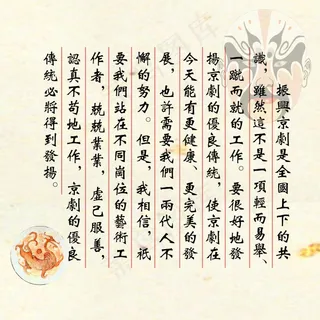 振興京劇是全國上下的共
識，雖然這不是一項輕而易舉、
一蹴而就的工作。要很好地發
揚京劇的優良傳統，使京劇在
今天能有更健康、更完美的發
展，也許需要我們一兩代人不
懈的努力。但是，我相信，祇
要我們站在不同崗位的藝術工
作者，兢兢業業，虛己服善，
認真不苟地工作，京劇的優良
傳統必將得到發揚。